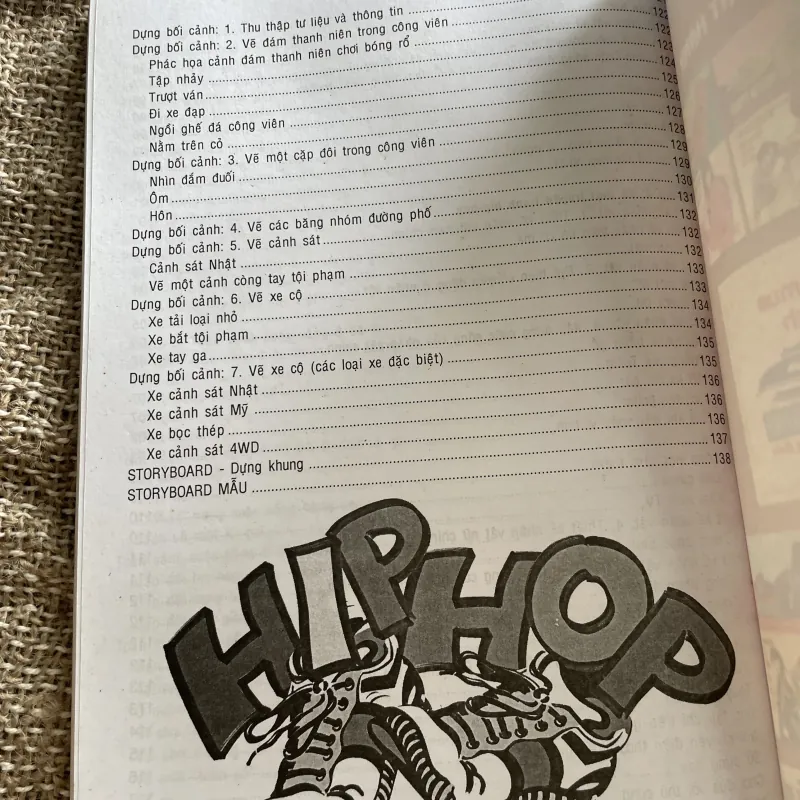 Dựng bối cảnh: 1. Thu thập tư liệu và thông tin
Dựng bối cảnh: 2. Vẽ đám thanh niên trong công viên ........ 122
Phác họa cảnh đám thanh niên chơi bóng rổ ........ 122
Tập nhảy ........ 123
Trượt ván ........ 124
Đi xe đạp ........ 125
Ngồi ghế đá công viên ........ 126
Nằm trên cỏ ........ 127
Dựng bối cảnh: 3. Vẽ một cặp đôi trong công viên ........ 128
Nhìn đắm đuối ........ 129
Ôm ........ 129
Hôn ........ 130
Dựng bối cảnh: 4. Vẽ các băng nhóm đường phố ........ 131
Dựng bối cảnh: 5. Vẽ cảnh sát ........ 132
Cảnh sát Nhật ........ 132
Vẽ một cảnh còng tay tội phạm ........ 132
Dựng bối cảnh: 6. Vẽ xe cộ ........ 133
Xe tải loại nhỏ ........ 133
Xe bắt tội phạm ........ 134
Xe tay ga ........ 134
Dựng bối cảnh: 7. Vẽ xe cộ (các loại xe đặc biệt) ........ 135
Xe cảnh sát Nhật ........ 135
Xe cảnh sát Mỹ ........ 136
Xe bọc thép ........ 136
Xe cảnh sát 4WD ........ 136
STORYBOARD - Dựng khung ........ 137
STORYBOARD MẪU ........ 138
HIPHOP